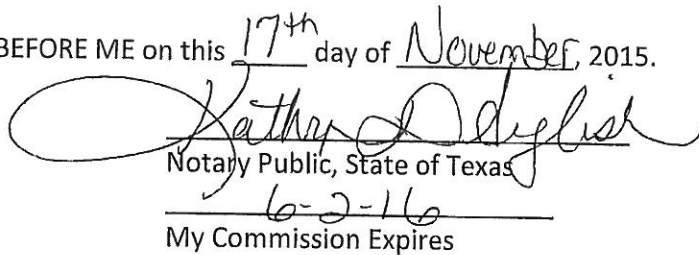 BEFORE ME on this 17th day of November, 2015.
Notary Public, State of Texas
6-2-16
My Commission Expires